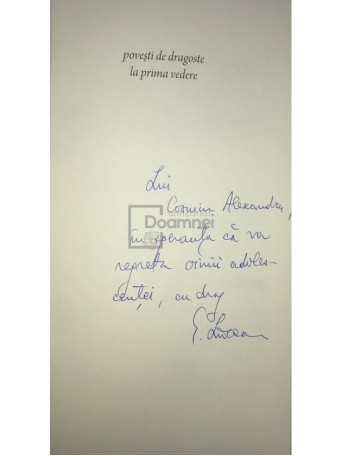 povești de dragoste
la prima vedere
Lui
Cosmin Alexandru,
în speranța că va
regreta
adoles-
cenței, cu drag
Doamnei